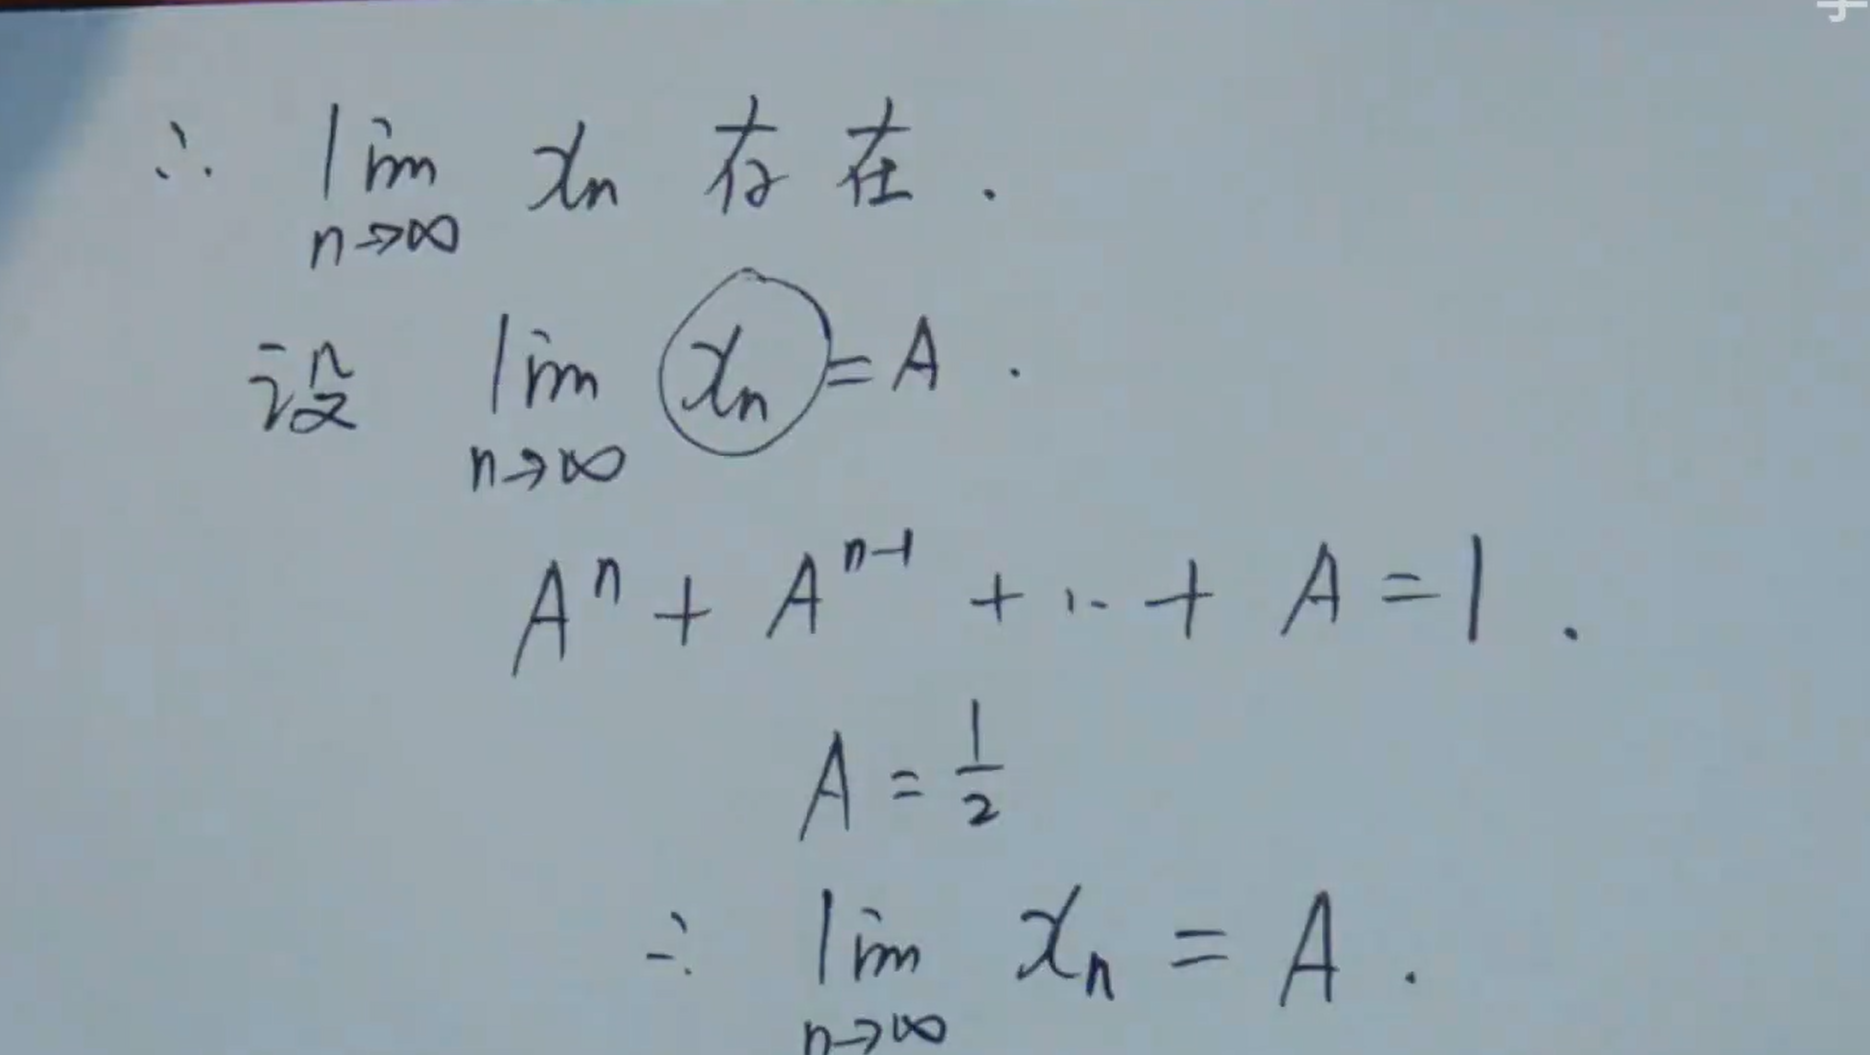 ∴ lim x_n 存在.
n→∞
设 lim x_n = A.
n→∞
A^n + A^{n-1} + ... + A = 1.
A = 1/2
∴ lim x_n = A.
n→∞